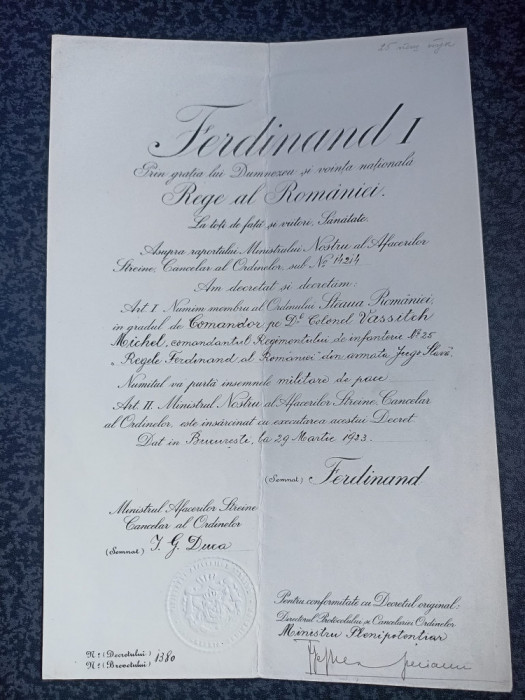 Ferdinand I
Prin grația lui Dumnezeu și voința națională
Rege al României.
La toți de față și viitori, Sănătate.
Asupra raportului Ministrului Nostru al Afacerilor
Streine, Cancelar al Ordinelor, sub No 14214
Am decretat și decretăm:
Art. I. Numim membru al Ordinului Steaua României,
în gradul de Comandor, pe Dl Colonel Vassitch
Michel, comandantul Regimentului de infanterie No 25
„Regele Ferdinand al României" din armata Jugo Slavă.
Numitul va purtă insemnele militare de pace.
Art. II. Ministrul Nostru al Afacerilor Streine, Cancelar
al Ordinelor, este însărcinat cu executarea acestui Decret.
Dat în București, la 29 Martie 1923.
(Semnat) Ferdinand
Ministrul Afacerilor Streine
Cancelar al Ordinelor
(Semnat) I. G. Duca
Pentru conformitate cu Decretul original:
Directorul Protocolului și Cancelariei Ordinelor
Ministru Plenipotențiar
No (Decretului) 1380
No (Brevetului)